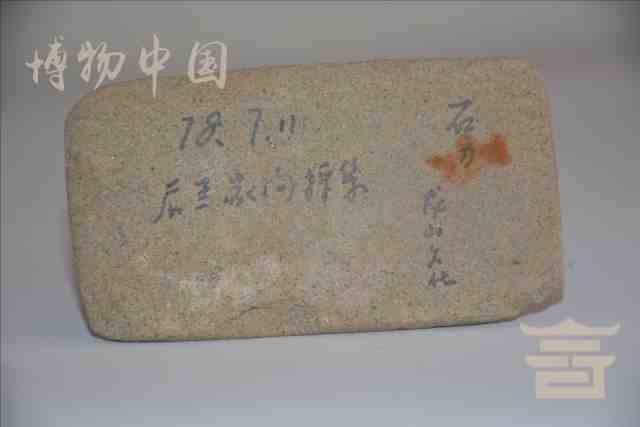 博物中国
78.7.11
石刀
龙山文化
后王家沟採集